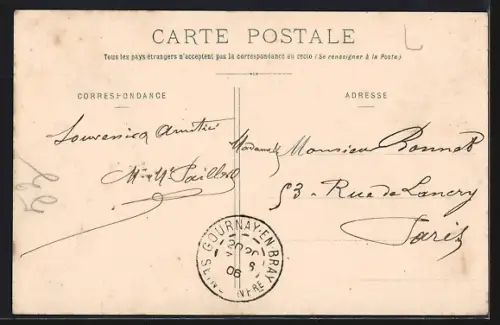 CARTE POSTALE
Tous les pays étrangers n'acceptent pas la correspondance au recto (Se renseigner à la Poste)
CORRESPONDANCE
ADRESSE
Souvenir Amitié
Mr Mme
Madame & Monsieur Bonnet
53 - Rue de Lancry
Paris
GOURNAY-EN-BRAY
06
INFRE
52